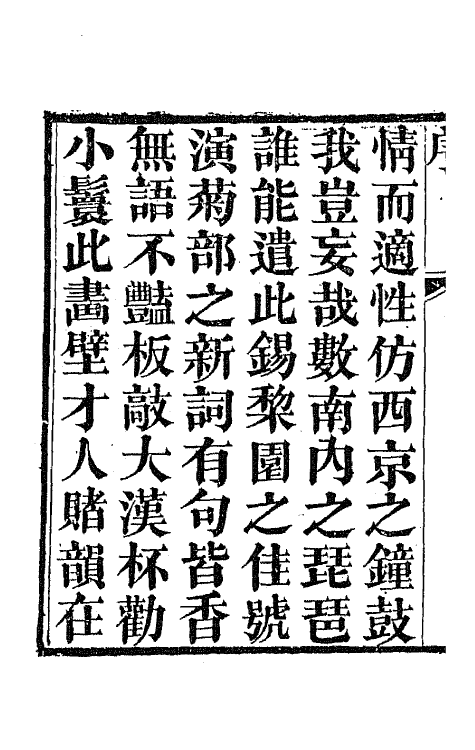 情而適性仿西京之鐘鼓
我豈妄哉數南內之琵琶
誰能遣此錫棃園之佳號
演菊部之新詞有句皆香
無語不豔板敲大漢杯勸
小鬟此畵壁才人賭韻在